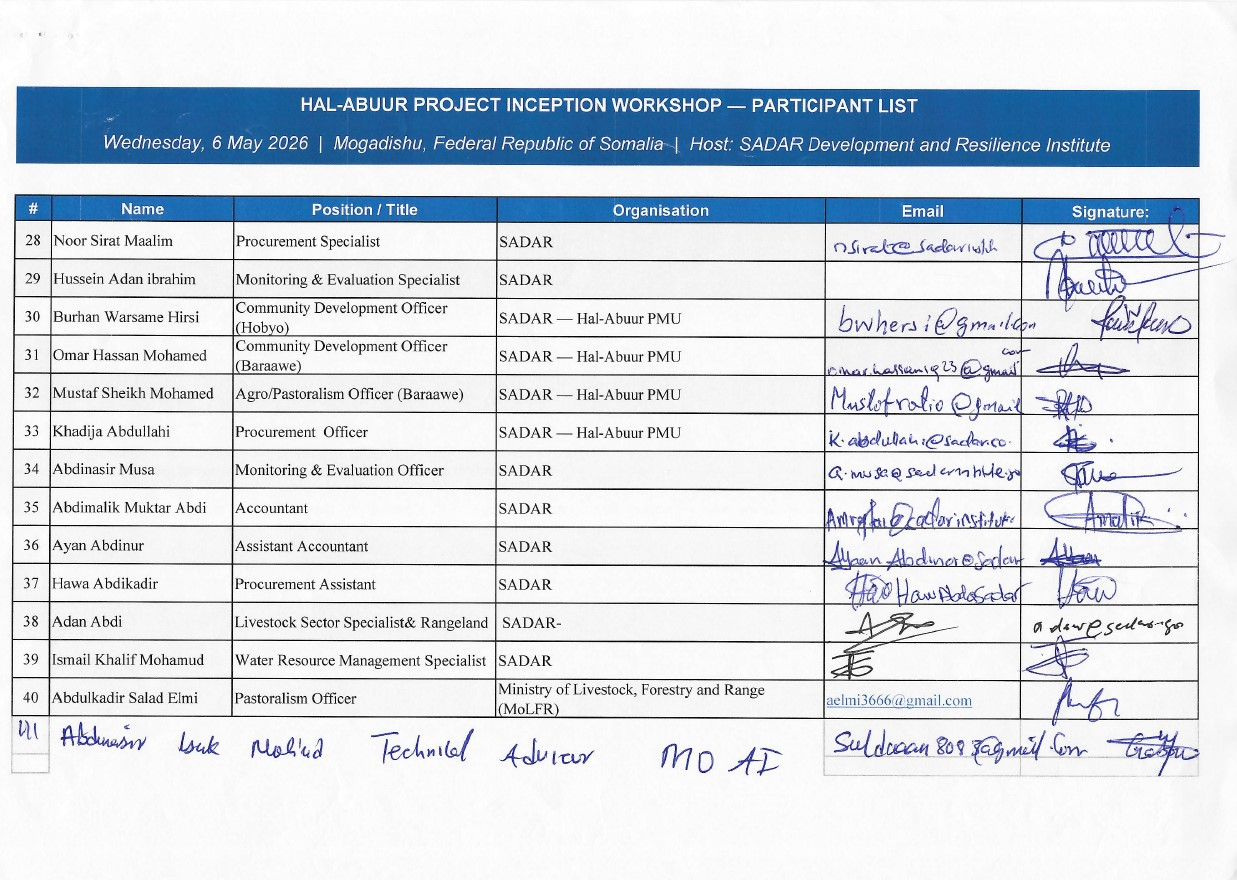 HAL-ABUUR PROJECT INCEPTION WORKSHOP — PARTICIPANT LIST
Wednesday, 6 May 2026 | Mogadishu, Federal Republic of Somalia | Host: SADAR Development and Resilience Institute
# Name Position / Title Organisation Email Signature:
28 Noor Sirat Maalim Procurement Specialist SADAR
29 Hussein Adan ibrahim Monitoring & Evaluation Specialist SADAR
30 Burhan Warsame Hirsi Community Development Officer (Hobyo) SADAR — Hal-Abuur PMU bwhersi@gmail.com
31 Omar Hassan Mohamed Community Development Officer (Baraawe) SADAR — Hal-Abuur PMU
32 Mustaf Sheikh Mohamed Agro/Pastoralism Officer (Baraawe) SADAR — Hal-Abuur PMU
33 Khadija Abdullahi Procurement Officer SADAR — Hal-Abuur PMU
34 Abdinasir Musa Monitoring & Evaluation Officer SADAR
35 Abdimalik Muktar Abdi Accountant SADAR
36 Ayan Abdinur Assistant Accountant SADAR
37 Hawa Abdikadir Procurement Assistant SADAR
38 Adan Abdi Livestock Sector Specialist& Rangeland SADAR-
39 Ismail Khalif Mohamud Water Resource Management Specialist SADAR
40 Abdulkadir Salad Elmi Pastoralism Officer Ministry of Livestock, Forestry and Range (MoLFR) aelmi3666@gmail.com
41 Technical MO AI